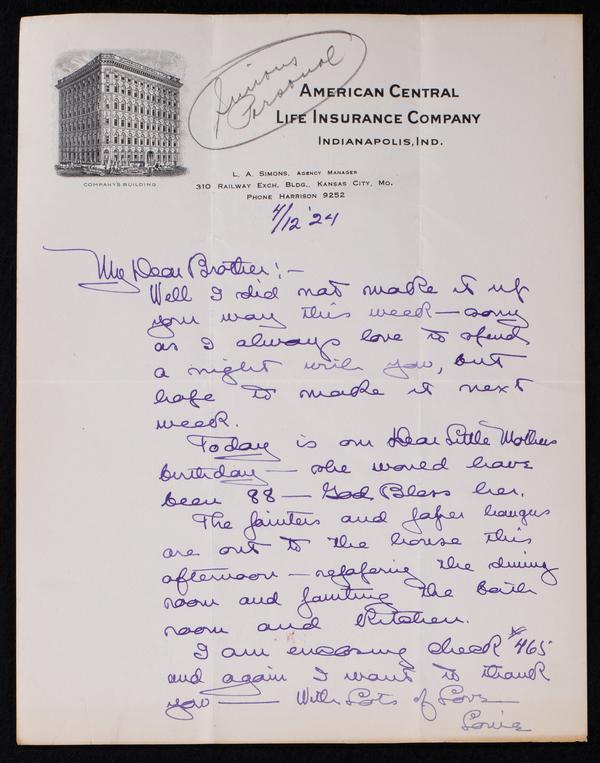 Simons
Personal
AMERICAN CENTRAL
LIFE INSURANCE COMPANY
INDIANAPOLIS, IND.
COMPANY'S BUILDING
L. A. SIMONS, AGENCY MANAGER
310 RAILWAY EXCH. BLDG., KANSAS CITY, MO.
PHONE HARRISON 9252
4/12 '24
My Dear Brother:-
Well I did not make it up
your way this week - sorry
as I always love to spend
a night with you, but
hope to make it next
week.
Today is our Dear Little Mothers
birthday - she would have
been 88 - God Bless her.
The painters and paper hangers
are out to the house this
afternoon - repapering the dining
room and painting the bath
room and kitchen.
I am enclosing check #465
and again I want to thank
you - With Lots of Love
Louie